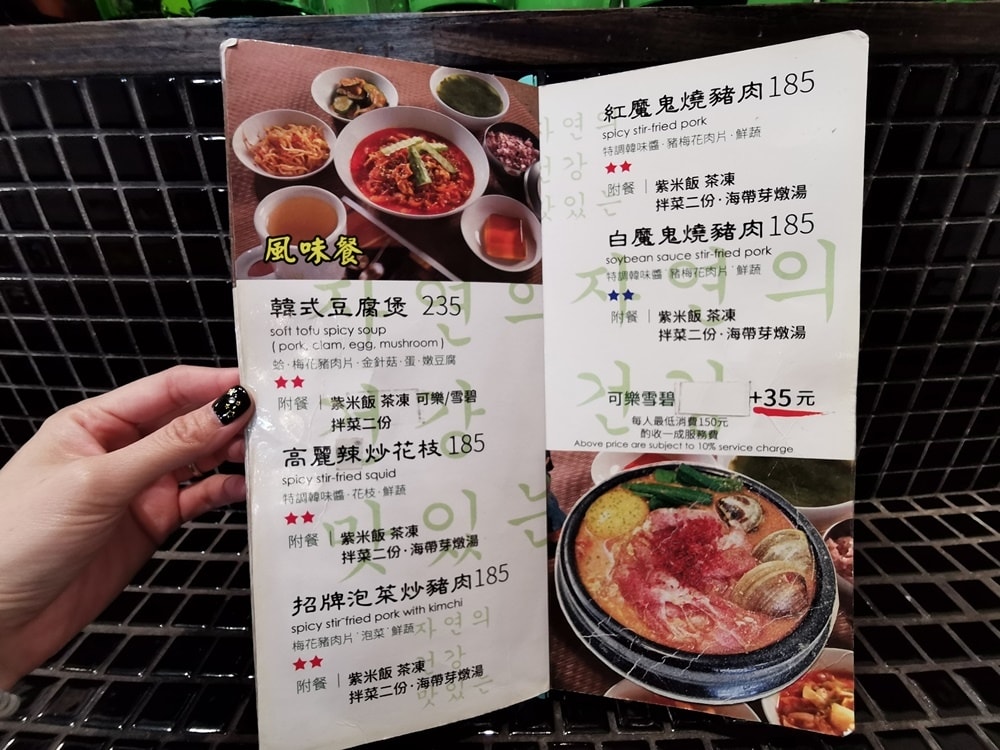 風味餐
韓式豆腐煲 235
soft tofu spicy soup
( pork, clam, egg, mushroom )
蛤·梅花豬肉片·金針菇·蛋·嫩豆腐
★★
附餐｜紫米飯 茶凍 可樂/雪碧
拌菜二份
高麗辣炒花枝 185
spicy stir-fried squid
特調韓味醬·花枝·鮮蔬
★★
附餐｜紫米飯 茶凍
拌菜二份·海帶芽燉湯
招牌泡菜炒豬肉 185
spicy stir-fried pork with kimchi
梅花豬肉片·泡菜·鮮蔬
★★
附餐｜紫米飯 茶凍
拌菜二份·海帶芽燉湯
자연의
건강
맛있는
자연의
건강
맛있는
紅魔鬼燒豬肉 185
spicy stir-fried pork
特調韓味醬·豬梅花肉片·鮮蔬
★★
附餐｜紫米飯 茶凍
拌菜二份·海帶芽燉湯
白魔鬼燒豬肉 185
soybean sauce stir-fried pork
特調韓味醬 豬梅花肉片 鮮蔬
★★
附餐｜紫米飯 茶凍
拌菜二份·海帶芽燉湯
可樂雪碧 +35 元
每人最低消費150元
酌收一成服務費
Above price are subject to 10% service charge
자연의
건강
맛있는
자연의
건강